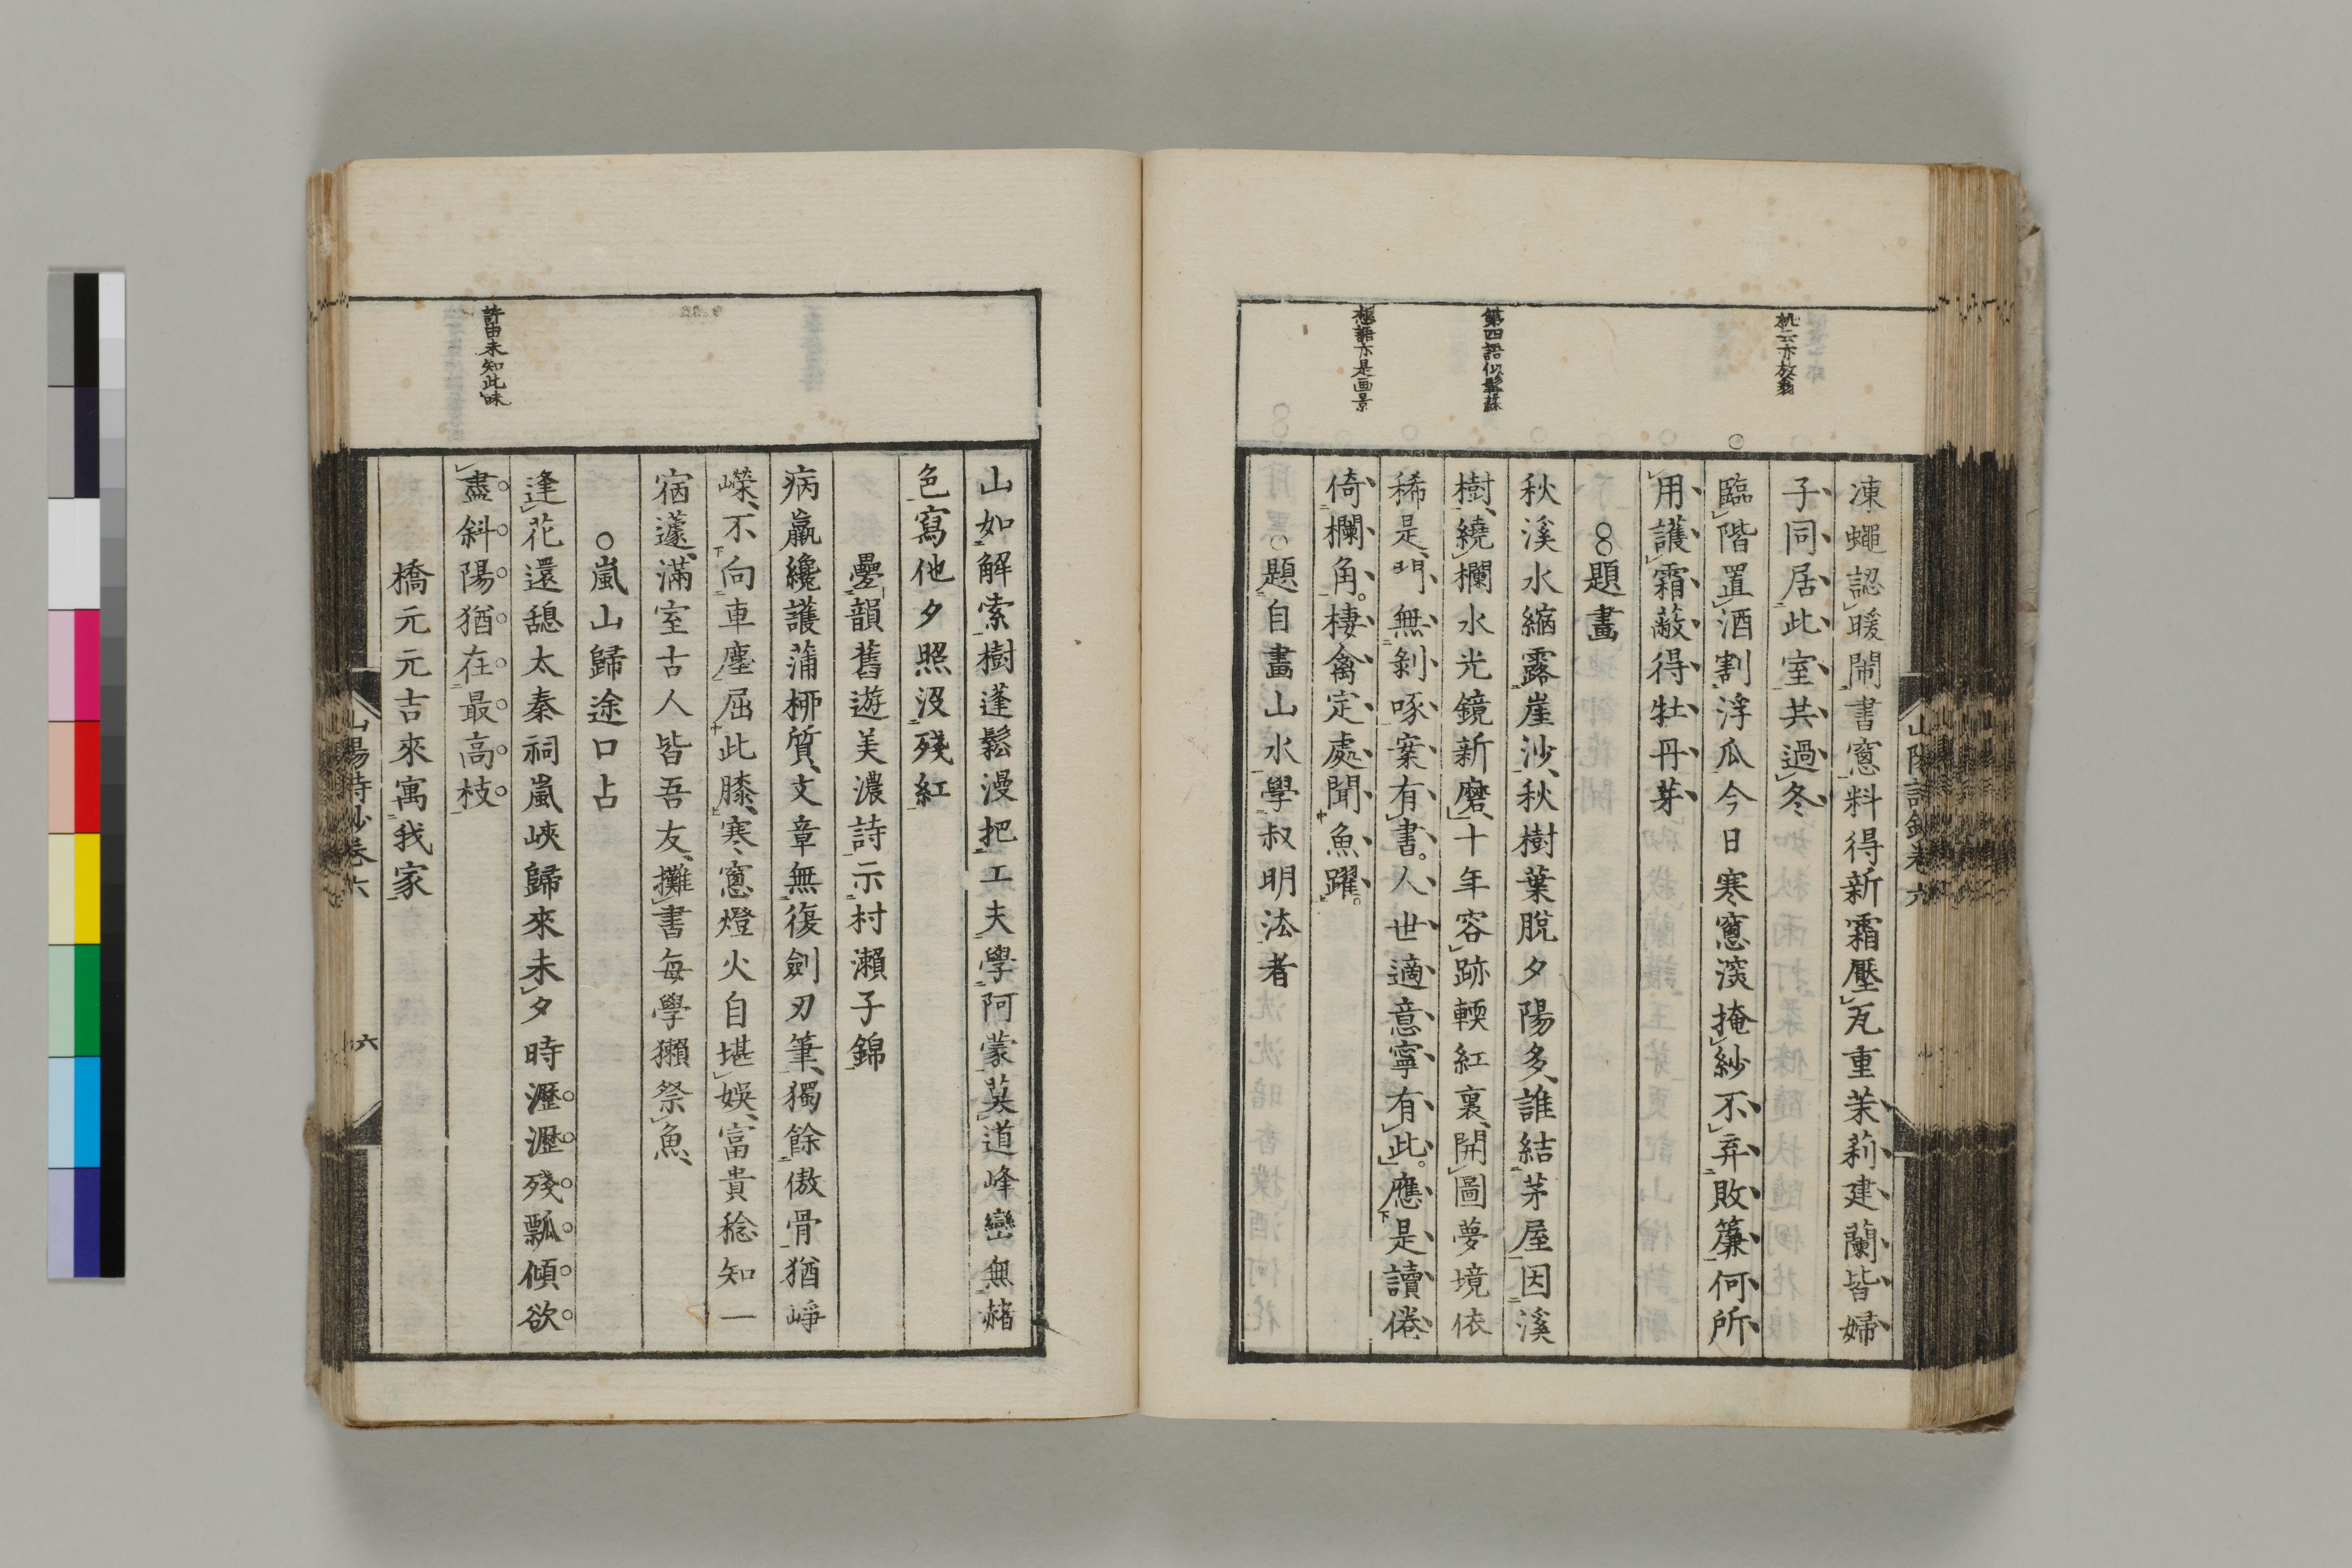 杋云亦放翁
第四語似髯蘇
極語亦是画景
凍蠅認暖鬧書窻料得新霜壓瓦重茉莉建蘭皆婦
子同居此室共過冬
臨階置酒割浮瓜今日寒窻淡掩紗不弃敗簾何所
用護霜蔽得牡丹芽
題畫
秋溪水縮露崖沙秋樹葉脫夕陽多誰結茅屋因溪
樹繞欄水光鏡新磨十年容跡輭紅裏開圖夢境依
稀是門無剝啄案有書人世適意寧有此應是讀倦
倚欄角棲禽定處聞魚躍
題自畫山水學叔明法者
山陽詩鈔卷六
許由未知此味
山如解索樹蓬鬆漫把工夫學阿蒙莫道峰巒無赭
色寫他夕照沒殘紅
疊韻舊遊美濃詩示村瀨子錦
病羸纔護蒲柳質文章無復劍刃筆獨餘傲骨猶崢
嶸不向車塵屈此膝寒窻燈火自堪娛富貴稔知一
宿蘧滿室古人皆吾友攤書每學獺祭魚
嵐山歸途口占
逢花還憩太秦祠嵐峽歸來未夕時瀝瀝殘瓢傾欲
盡斜陽猶在最高枝
橋元元吉來寓我家
山陽詩鈔卷六
六